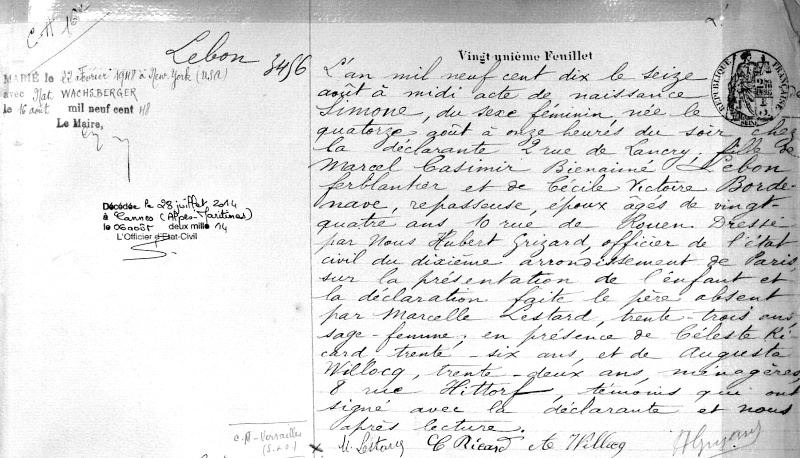 C.N 16
Lebon
3456
MARIÉ le 22 Février 1948 à New-York (USA)
avec Nat WACHSBERGER
le 16 août mil neuf cent 48
Le Maire,
Décédée le 28 juillet 2014
à Cannes (Alpes-Maritimes)
le 06 août deux mille 14
L'Officier d'Etat-Civil
C.N - Versailles
Vingt unième Feuillet
RÉPUBLIQUE FRANÇAISE
SEINE
L'an mil neuf cent dix le seize
août à midi acte de naissance de
Simone, du sexe féminin, née le
quatorze août à onze heures du soir chez
la déclarante 2 rue de Lancry, fille de
Marcel Casimir Bienaimé Lebon
ferblantier et de Cécile Victoire Borde-
nave, repasseuse, époux âgés de vingt-
quatre ans 10 rue de Rouen. Dressé
par Nous Hubert Grizard, officier de l'état
civil du dixième arrondissement de Paris,
sur la présentation de l'enfant et
la déclaration faite le père absent
par Marcelle Lestard, trente-trois ans,
sage-femme; en présence de Céleste Ri-
card trente-six ans, et de Augusta
Willocq, trente-deux ans, ménagères,
8 rue Hittorf, témoins qui ont
signé avec la déclarante et nous
après lecture.
M. Lestard C Ricard A Willocq